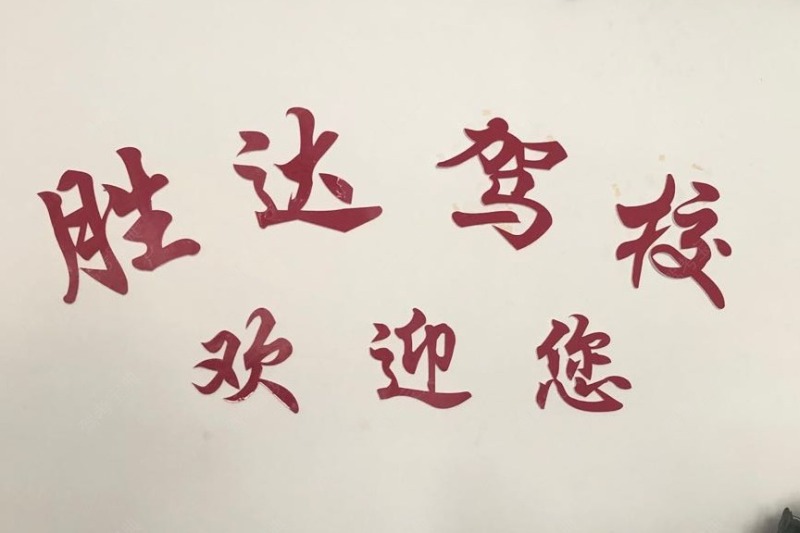 胜达驾校
欢迎您